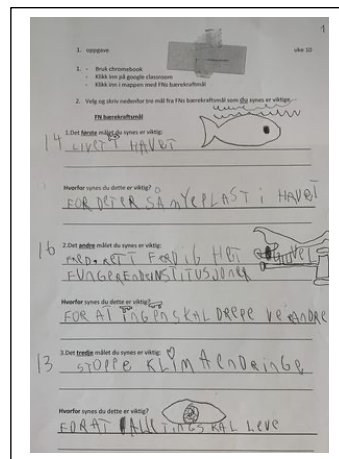 1
1. oppgave
uke 10
1. - Bruk chromebook
- Klikk inn på google classroom
- Klikk inn i mappen med FNs bærekraftmål
2. Velg og skriv nedenfor tre mål fra FNs bærekraftsmål som dig synes er viktige.
FN bærekraftsmål
1.Det første målet du synes er viktig:
14 LIVET I HAVET
Hvorfor synes du dette er viktig?
FOR DETER SÅ MYEPLAST I HAVET
16 2.Det andre målet du synes er viktig:
RETTFERDIGHET
FUNGERENDEINSTITUSJONER
Hvorfor synes du dette er viktig?
FOR AT INGENSKAL DREPE VERANDRE
13 3.Det tredje målet du synes er viktig:
STOPPE KLIMAENDRINGE
Hvorfor synes du dette er viktig?
FORAT ALLETINGSKAL LEVE